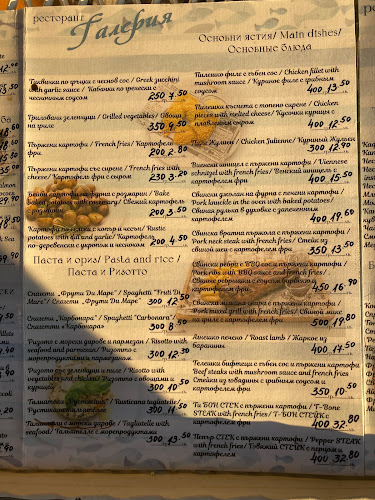 ресторант
Галерия
Тиквички по гръцки с чеснов сос / Greek zucchini
with garlic sauce / Кабачки по гречески с
чесноковым соусом
250 7.50
Гриловани зеленчуци / Grilled vegetables / Овощи
на гриле
350 9.50
Пържени картофи / French fries / Картофель
фри
200 2.80
Пържени картофи със сирене / French fries with
cheese / Картофель фри с сыром
230 3.20
200 3.50
Картофи по селски с копър и чесън / Rustic
potatoes with dill and garlic / Картофель
по-деревенски с укропом и чесноком
200 4.50
Паста и ориз / Pasta and rice /
Паста и Ризотто
Спагети „Фрути Ди Маре" / Spaghetti "Fruti Di
Mare"/ Спагети „Фрути Ди Маре"
300 12.50
Спагети „Карбонара" / Spaghetti "Carbonara"/
Спагети «Карбонара»
300 8.50
Ризото с морски дарове и пармезан / Risotto with
seafood and parmesan / Ризотто с
морепродуктами и пармезаном
300
Ризото със зеленчуци и пиле / Risotto with
vegetables and chicken / Ризотто с овощами и
курицей
300 10.50
300 11.50
Талиатели с морски дарове / Tagliatelle with
seafood / Тальятелле с морепродуктами
300 13.50
Основни ястия/ Main dishes/
Основные блюда
Пилешко филе с гъбен сос / Chicken fillet with
mushroom sauce / Куриное филе с грибным
соусом
400 13.50
Пилешки късчета с топено сирене / Chicken
pieces with melted cheese / Кусочки курицы с
плавленым сыром
400 12.50
Пиле Жулиен / Chicken Julienne / Куриный Жульен
300 12.90
Виенски шницел с пържени картофи / Viennese
schnitzel with french fries / Венский шницель с
картофелем фри
400 15.50
Свински джолан на фурна с печени картофи
/ Pork knuckle in the oven with baked potatoes /
Свиная рулька в духовке с запеченным
картофелем
400 19.60
Свинска вратна пържола с пържени картофи /
Pork neck steak with french fries / Стейк из
свиной шеи с картофелем фри
350 13.50
Свински ребра с BBQ сос и пържени картофи /
Pork ribs with BBQ sauce and french fries /
450 16.90
Pork mixed grill with french fries / Свиной микс
на гриле с картофелем фри
500 19.80
Агнешко печено / Roast lamb / Жаркое из
баранины
400 17.50
Телешки бифтеци с гъбен сос и пържени картофи /
Beef steaks with mushroom sauce and french fries /
Стейки из говядины с грибным соусом и
картофелем фри
350 10.50
Ти БОН СТЕК с пържени картофи / T-Bone
STEAK with french fries / Т-БОН СТЕЙК с
картофелем фри
400 32.80
Пепър СТЕК с пържени картофи / Pepper STEAK
with french fries / Говяжий СТЕЙК с перцем и
картофелем
400 32.80